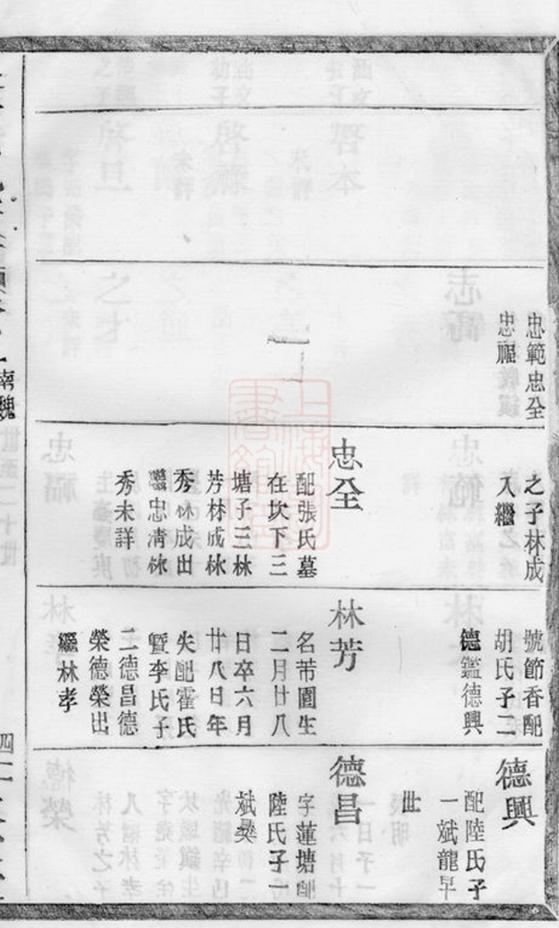 忠範忠全
忠福
之子林成
入繼
忠全
配張氏墓
在坎下三
塘子三林
芳林成林
秀林成出
繼忠清林
秀未詳
號節香配
胡氏子二
德鑑德興
林芳
名芾園生
二月廿八
日卒六月
廿八日年
失配霍氏
暨李氏子
二德昌德
榮德榮出
繼林孝
德興
配陸氏子
一斌龍早
世
德昌
字蓮塘配
陸氏子一
斌燊
南魏